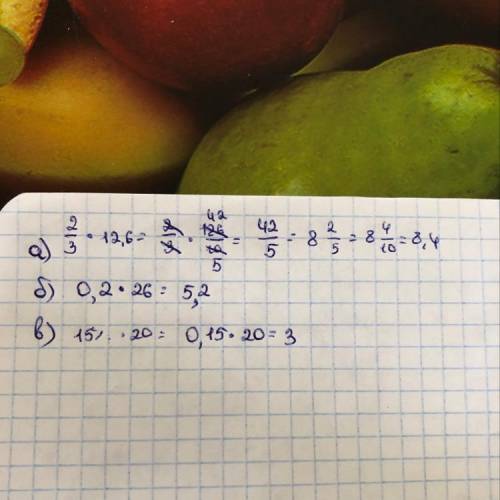 а) 2/3 · 12,6 = 2/3 · 126/10 42 5 = 42/5 = 8 2/5 = 8 4/10 = 8,4
б) 0,2 · 26 = 5,2
в) 15% · 20 = 0,15 · 20 = 3